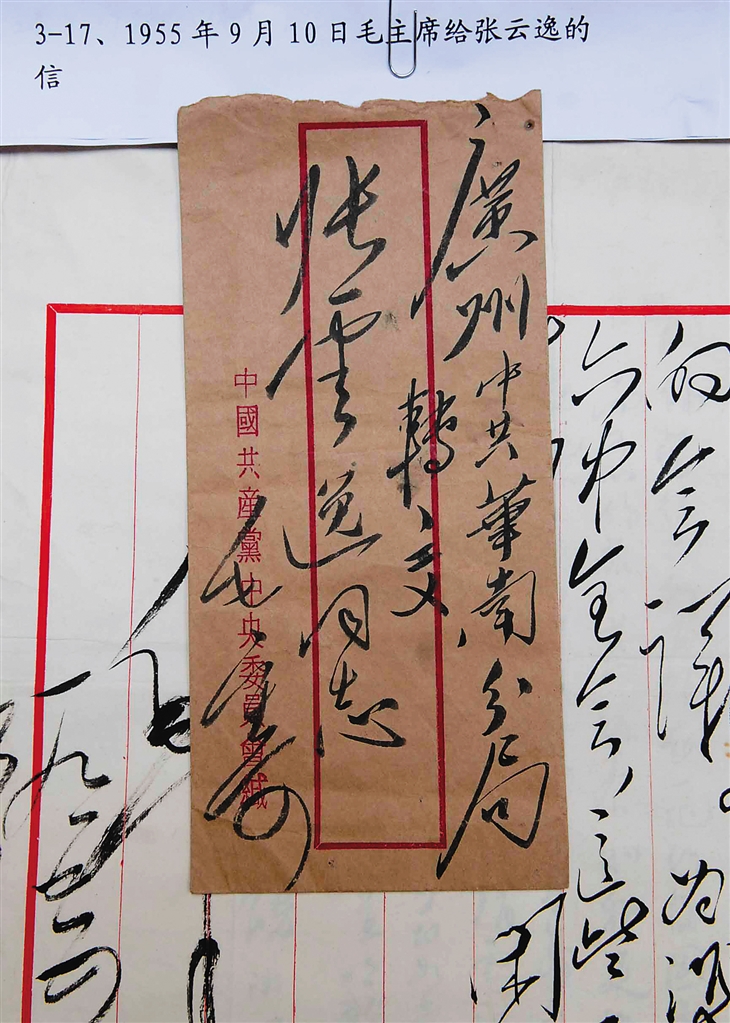 3-17、1955 年 9 月 10 日毛主席给张云逸的
信
廣州中共華南分局
轉交
張雲逸同志
毛寄
中國共産黨中央委員會緘
的会議。为
六中全会，这些